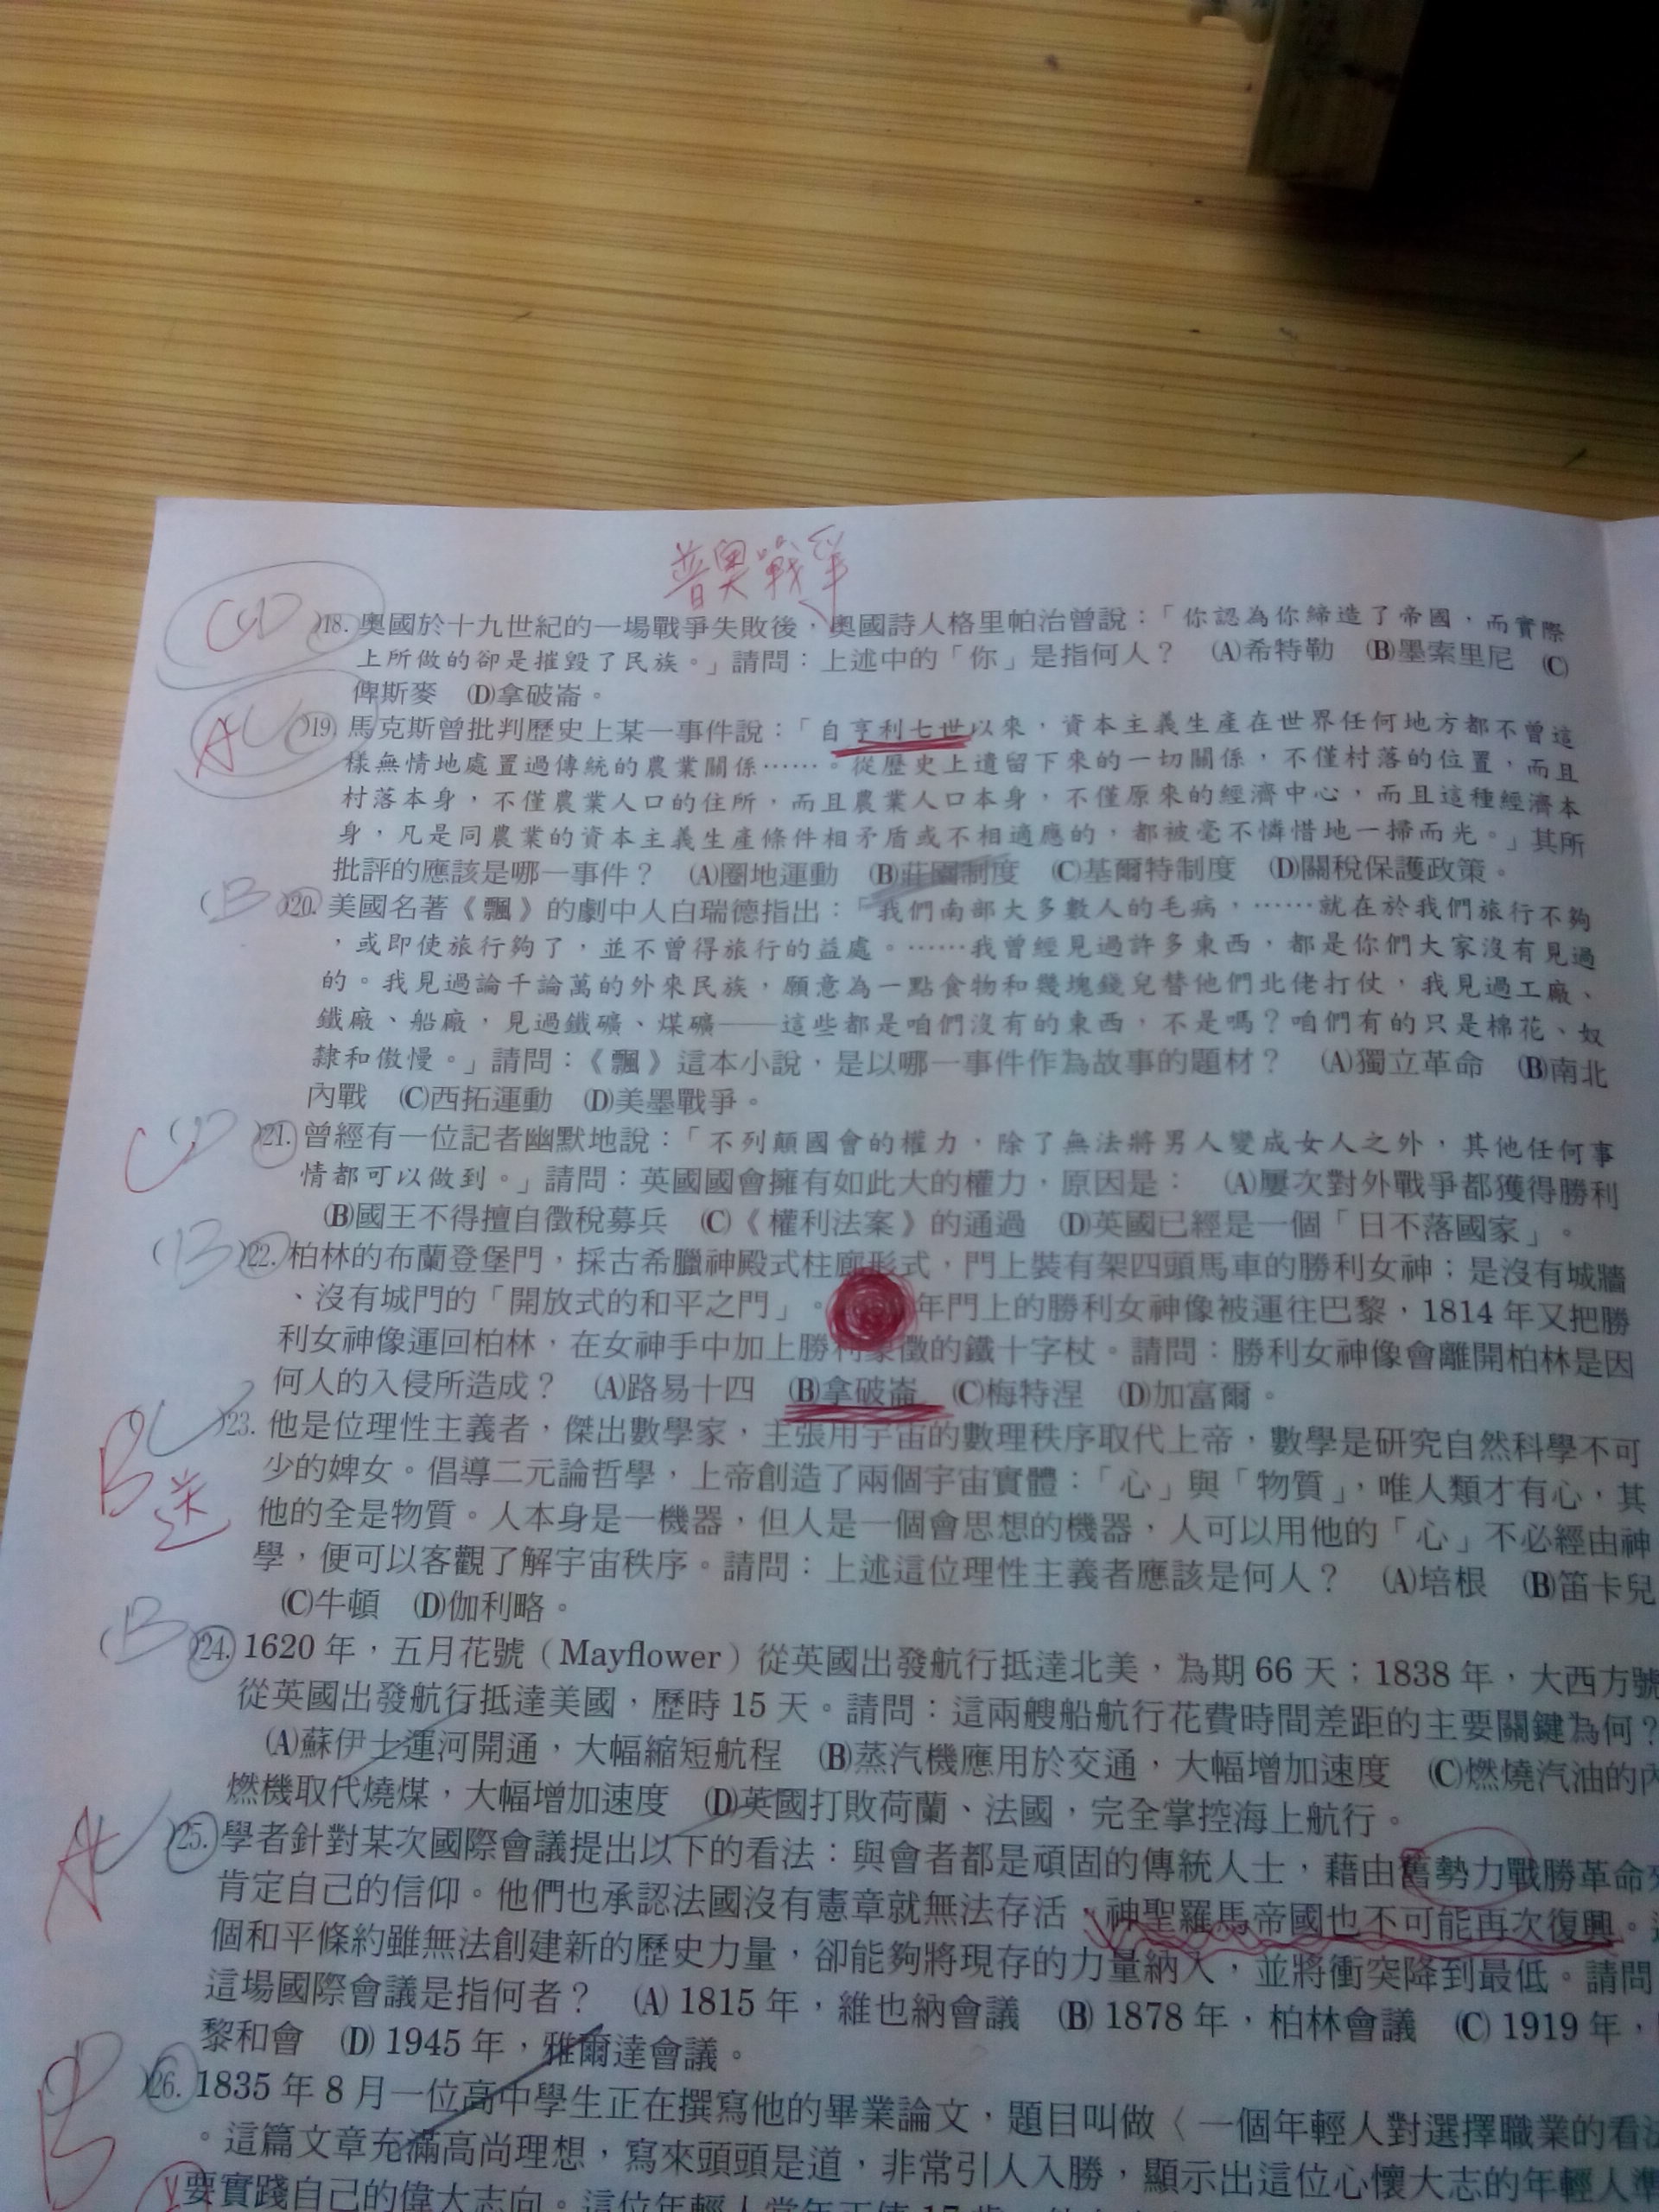 普奧戰爭
18. 奧國於十九世紀的一場戰爭失敗後，奧國詩人格里帕治曾說：「你認為你締造了帝國，而實際
上所做的卻是摧毀了民族。」請問：上述中的「你」是指何人？ (A)希特勒 (B)墨索里尼 (C)
俾斯麥 (D)拿破崙。
A )19. 馬克斯曾批判歷史上某一事件說：「自亨利七世以來，資本主義生產在世界任何地方都不曾這
樣無情地處置過傳統的農業關係……。從歷史上遺留下來的一切關係，不僅村落的位置，而且
村落本身，不僅農業人口的住所，而且農業人口本身，不僅原來的經濟中心，而且這種經濟本
身，凡是同農業的資本主義生產條件相矛盾或不相適應的，都被毫不憐惜地一掃而光。」其所
批評的應該是哪一事件？ (A)圈地運動 (B)莊園制度 (C)基爾特制度 (D)關稅保護政策。
(B )20. 美國名著《飄》的劇中人白瑞德指出：「我們南部大多數人的毛病，……就在於我們旅行不夠
，或即使旅行夠了，並不曾得旅行的益處。……我曾經見過許多東西，都是你們大家沒有見過
的。我見過論千論萬的外來民族，願意為一點食物和幾塊錢兒替他們北佬打仗，我見過工廠、
鐵廠、船廠，見過鐵礦、煤礦——這些都是咱們沒有的東西，不是嗎？咱們有的只是棉花、奴
隸和傲慢。」請問：《飄》這本小說，是以哪一事件作為故事的題材？ (A)獨立革命 (B)南北
內戰 (C)西拓運動 (D)美墨戰爭。
C )21. 曾經有一位記者幽默地說：「不列顛國會的權力，除了無法將男人變成女人之外，其他任何事
情都可以做到。」請問：英國國會擁有如此大的權力，原因是： (A)屢次對外戰爭都獲得勝利
(B)國王不得擅自徵稅募兵 (C)《權利法案》的通過 (D)英國已經是一個「日不落國家」。
(B )22. 柏林的布蘭登堡門，採古希臘神殿式柱廊形式，門上裝有架四頭馬車的勝利女神；是沒有城牆
、沒有城門的「開放式的和平之門」。 年門上的勝利女神像被運往巴黎，1814 年又把勝
利女神像運回柏林，在女神手中加上勝利象徵的鐵十字杖。請問：勝利女神像會離開柏林是因
何人的入侵所造成？ (A)路易十四 (B)拿破崙 (C)梅特涅 (D)加富爾。
B )23. 他是位理性主義者，傑出數學家，主張用宇宙的數理秩序取代上帝，數學是研究自然科學不可
送
少的婢女。倡導二元論哲學，上帝創造了兩個宇宙實體：「心」與「物質」，唯人類才有心，其
他的全是物質。人本身是一機器，但人是一個會思想的機器，人可以用他的「心」不必經由神
學，便可以客觀了解宇宙秩序。請問：上述這位理性主義者應該是何人？ (A)培根 (B)笛卡兒
(C)牛頓 (D)伽利略。
(B )24. 1620 年，五月花號（Mayflower）從英國出發航行抵達北美，為期 66 天；1838 年，大西方號
從英國出發航行抵達美國，歷時 15 天。請問：這兩艘船航行花費時間差距的主要關鍵為何？
(A)蘇伊士運河開通，大幅縮短航程 (B)蒸汽機應用於交通，大幅增加速度 (C)燃燒汽油的內
燃機取代燒煤，大幅增加速度 (D)英國打敗荷蘭、法國，完全掌控海上航行。
A )25. 學者針對某次國際會議提出以下的看法：與會者都是頑固的傳統人士，藉由舊勢力戰勝革命
肯定自己的信仰。他們也承認法國沒有憲章就無法存活，神聖羅馬帝國也不可能再次復興。
個和平條約雖無法創建新的歷史力量，卻能夠將現存的力量納入，並將衝突降到最低。請問
這場國際會議是指何者？ (A) 1815 年，維也納會議 (B) 1878 年，柏林會議 (C) 1919 年，
黎和會 (D) 1945 年，雅爾達會議。
B )26. 1835 年 8 月一位高中學生正在撰寫他的畢業論文，題目叫做〈一個年輕人對選擇職業的看法
。這篇文章充滿高尚理想，寫來頭頭是道，非常引人入勝，顯示出這位心懷大志的年輕人準
要實踐自己的偉大志向。這位年輕人當年正值 17 歲